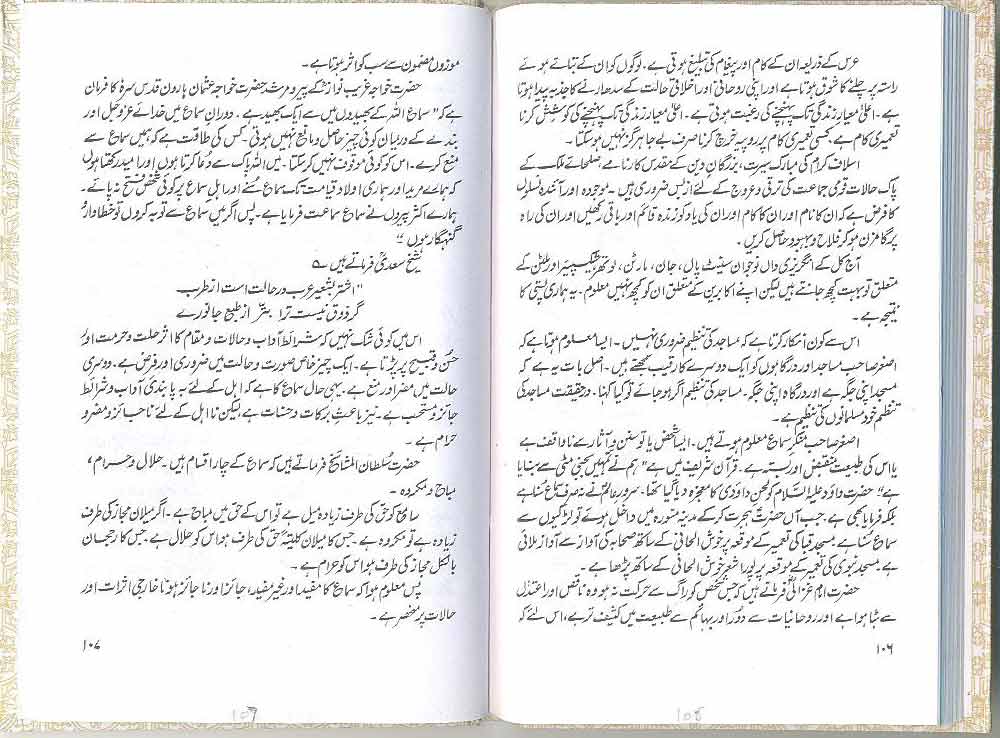 عرس کے ذریعہ ان کے کام اور پیغام کی تبلیغ ہوتی ہے۔ لوگوں کو ان کے بتائے ہوئے
راستہ پر چلنے کا شوق ہوتا ہے اور اپنی روحانی اور اخلاقی حالت کے سدھارنے کا جذبہ پیدا ہوتا
ہے۔ اعلیٰ معیار زندگی تک پہنچنے کی رغبت ہوتی ہے۔ اعلیٰ معیار زندگی تک پہنچنے کی کوشش کرنا
تعمیری کام ہے، کسی تعمیری کام پر روپیہ خرچ کرنا صرف بے جا ہرگز نہیں ہو سکتا۔
اسلاف کرام کی مبارک سیرت، بزرگان دین کے مقدس کارنامے، صلحائے ملک کے
پاک حالات قومی جماعت کی ترقی و عروج کے لئے از بس ضروری ہیں۔ موجودہ اور آئندہ نسلوں
کا فرض ہے کہ ان کا نام اور ان کا کام اور ان کی یاد کو زندہ قائم اور باقی رکھیں اور ان کی راہ
پر گامزن ہو کر فلاح و بہبود حاصل کریں۔
آج کل کے انگریزی داں نوجوان سینٹ پال، جان، مارٹن، لوتھر، شیکسپیئر اور ملٹن کے
متعلق تو بہت کچھ جانتے ہیں لیکن اپنے اکابرین کے متعلق ان کو کچھ نہیں معلوم۔ یہ ہماری پستی کا
نتیجہ ہے۔
اس سے کون انکار کرتا ہے کہ مساجد کی تنظیم ضروری نہیں۔ ایسا معلوم ہوتا ہے کہ
اصغر صاحب مساجد اور درگاہوں کو ایک دوسرے کا رقیب سمجھتے ہیں۔ اصل بات یہ ہے کہ
مسجد اپنی جگہ ہے اور درگاہ اپنی جگہ۔ مساجد کی تنظیم اگر ہو جائے تو کیا کہنا۔ درحقیقت مساجد کی
تنظیم خود مسلمانوں کی تنظیم ہے۔
اصغر صاحب منکر سماع معلوم ہوتے ہیں۔ ایسا شخص یا تو سنن و آثار سے ناواقف ہے
یا اس کی طبیعت منقبض اور بستہ ہے۔ قرآن شریف میں ہے "ہم نے تمہیں بجتی مٹی سے بنایا
ہے" حضرت داؤد علیہ السلام کو لحن داؤدی کا معجزہ دیا گیا تھا۔ سرور عالمؐ نے نہ صرف سماع سنا ہے
بلکہ فرمایا بھی ہے، جب آں حضرتؐ ہجرت کر کے مدینہ منورہ میں داخل ہوئے تو لڑکیوں سے
سماع سنا ہے، مسجد قبا کی تعمیر کے موقعہ پر خوش الحانی کے ساتھ صحابہ کی آواز سے آواز ملائی
ہے، مسجد نبوی کی تعمیر کے موقعہ پر پورا شعر خوش الحانی کے ساتھ پڑھا ہے۔
حضرت امام غزالیؒ فرماتے ہیں کہ جس شخص کو راگ سے حرکت نہ ہو وہ ناقص اور اعتدال
سے ہٹا ہوا ہے اور روحانیات سے دور اور بہائم سے طبیعت میں کثیف تر ہے، اس لئے کہ
۱۰۶
108
موزوں مضمون سے سب کو اثر ہوتا ہے۔
حضرت خواجہ غریب نوازؒ کے پیر و مرشد حضرت خواجہ عثمان ہارونی قدس سرہٗ کا فرمان
ہے کہ "سماع اللہ کے بھیدوں میں سے ایک بھید ہے۔ دوران سماع میں خدائے عزوجل اور
بندے کے درمیان کوئی چیز حائل و مانع نہیں ہوتی۔ کس کی طاقت ہے کہ ہمیں سماع سے
منع کرے۔ اس کو کوئی موقوف نہیں کر سکتا۔ میں اللہ پاک سے دعا کرتا ہوں اور امید رکھتا ہوں
کہ ہمارے مرید اور ہماری اولاد قیامت تک سماع سنے اور اہل سماع پر کوئی شخص فتح نہ پائے۔
ہمارے اکثر پیروں نے سماع سماعت فرمایا ہے۔ پس اگر میں سماع سے توبہ کروں تو خطاوار و
گنہگار ہوں"
شیخ سعدیؒ فرماتے ہیں ؎
"اشتر بشعیر عرب در حالت است از طرب
گر ذوق نیست ترا بتر از طبع جانورے
اس میں کوئی شک نہیں کہ شرائط آداب و حالات و مقام کا اثر حلت و حرمت اور
حسن و قبیح پر پڑتا ہے۔ ایک چیز خاص صورت و حالت میں ضروری اور فرض ہے۔ دوسری
حالت میں مضر اور منع ہے۔ یہی حال سماع کا ہے کہ اہل کے لئے بہ پابندی آداب و شرائط
جائز و مستحب ہے۔ نیز باعث برکات و حسنات ہے لیکن نا اہل کے لئے ناجائز و مضر و
حرام ہے۔
حضرت سلطان المشائخ فرماتے ہیں کہ سماع کے چار اقسام ہیں۔ حلال و حرام،
مباح و مکروہ۔
سامع کو حق کی طرف زیادہ میل ہے تو اس کے حق میں مباح ہے۔ اگر میلان مجاز کی طرف
زیادہ ہے تو مکروہ ہے۔ جس کا میلان کلیۃً حق کی طرف ہو اس کو حلال ہے۔ جس کا رجحان
بالکل مجاز کی طرف ہو اس کو حرام ہے۔
پس معلوم ہوا کہ سماع کا مفید اور غیر مفید، جائز اور ناجائز ہونا خارجی اثرات اور
حالات پر منحصر ہے۔
۱۰۷
109